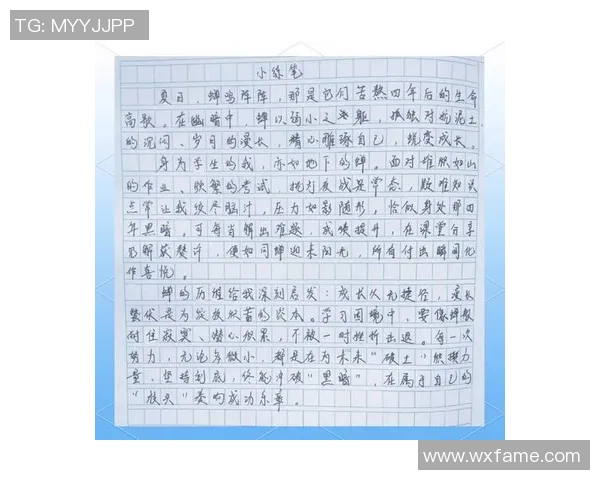 TG: MYYJJPP
小练笔
夏日，蝉鸣阵阵，那是它们苦熬四年后的生命
高歌。在幽暗中，蝉以弱小之躯，孤独对抗泥土
的沉闷、岁月的漫长，精心雕琢自己，蜕变成长。
身为学生的我，亦如地下的蝉。面对堆积如山
的作业、频繁的考试，挑灯夜战是常态，疑难知识
点常让我绞尽脑汁，压力如影随形，恰似身处那四
年黑暗。可每当解出难题，成绩提升，在课堂分享
见解获赞许，便如同蝉迎来阳光，所有付出瞬间化
作喜悦。
蝉的历程给我深刻启发：成长从无捷径，漫长
蛰伏是为实现蓄的资本。学习困境中，要像蝉般
耐住寂寞、潜心积累，不被一时挫折击退。每一次
努力，无论多微小，都是在为未来“破土”积攒力
量，坚持到底，终能冲破“黑暗”，在属于自己的
“枝头”奏响成功乐章。
www.wxfame.com